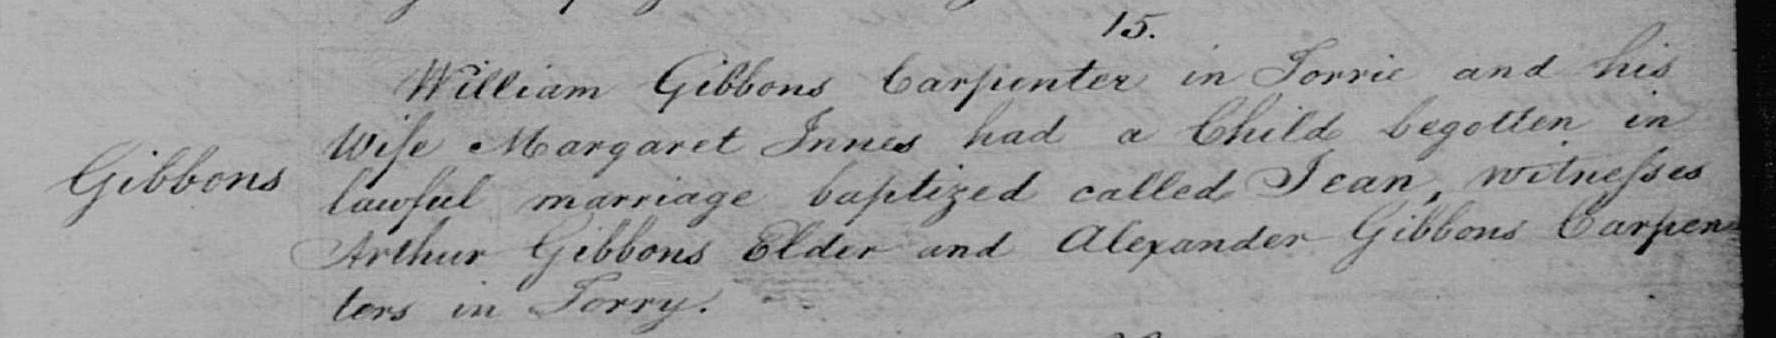 15.
William Gibbons Carpenter in Torrie and his
Gibbons
Wife Margaret Innes had a Child begotten in
lawful marriage baptized called Jean, witnesses
Arthur Gibbons Elder and Alexander Gibbons Carpen
ters in Torry.